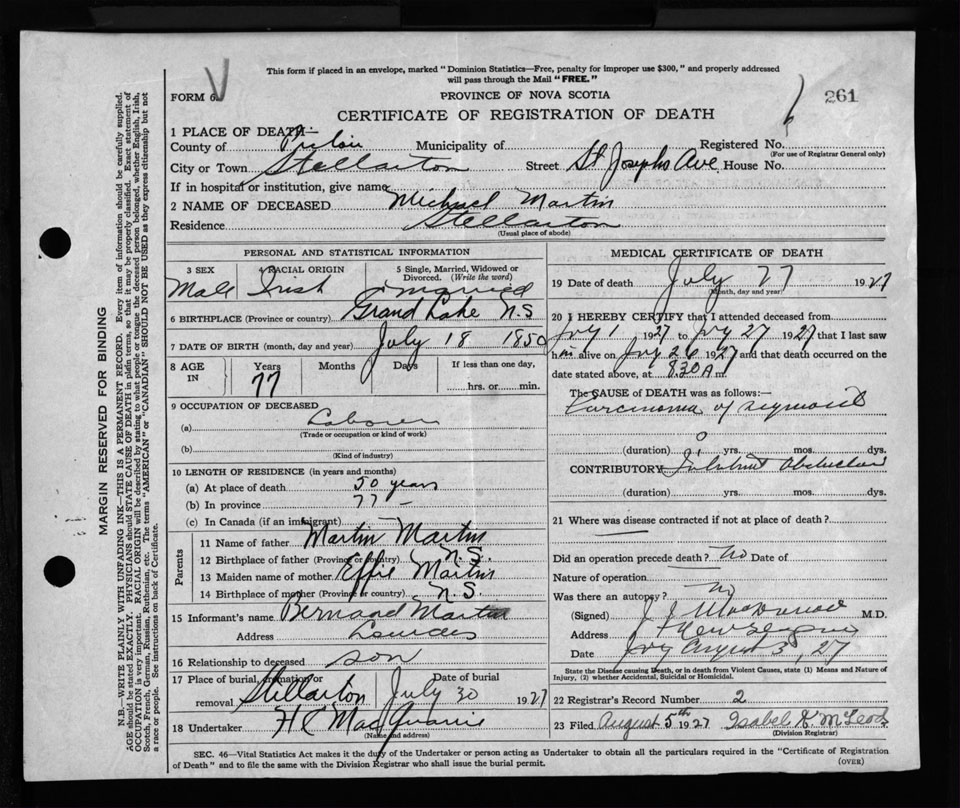 This form if placed in an envelope, marked "Dominion Statistics—Free, penalty for improper use $300," and properly addressed
will pass through the Mail "FREE."
FORM 6.
PROVINCE OF NOVA SCOTIA
261
CERTIFICATE OF REGISTRATION OF DEATH
1 PLACE OF DEATH—
County of Pictou Municipality of Registered No.
(For use of Registrar General only)
City or Town Stellarton Street St Josephs Ave. House No.
If in hospital or institution, give name
2 NAME OF DECEASED Michael Martin
Residence Stellarton
(Usual place of abode)
PERSONAL AND STATISTICAL INFORMATION
3 SEX 4 RACIAL ORIGIN 5 Single, Married, Widowed or Divorced. (Write the word)
Male Irish married
6 BIRTHPLACE (Province or country) Grand Lake N.S
7 DATE OF BIRTH (month, day and year) July 18 1850
8 AGE IN Years Months Days If less than one day,
77 hrs. or min.
9 OCCUPATION OF DECEASED
(a) Laborer
(Trade or occupation or kind of work)
(b)
(Kind of industry)
10 LENGTH OF RESIDENCE (in years and months)
(a) At place of death 50 years
(b) In province 77 -
(c) In Canada (if an immigrant)
Parents
11 Name of father Martin Martin
12 Birthplace of father (Province or country) N.S.
13 Maiden name of mother Effie Martin
14 Birthplace of mother (Province or country) N.S.
15 Informant's name Bernard Martin
Address Lourdes
16 Relationship to deceased son
17 Place of burial, cremation or removal Stellarton Date of burial July 30 1927
18 Undertaker H C MacQuarrie
(Name and address)
MEDICAL CERTIFICATE OF DEATH
19 Date of death July 27 1927
(Month, day and year)
20 I HEREBY CERTIFY that I attended deceased from
July 1 1927 to July 27 1927 that I last saw
him alive on July 26 1927 and that death occurred on the
date stated above, at 8.30 A m.
The CAUSE of DEATH was as follows:
Carcinoma of sigmoid
(duration) yrs. mos. dys.
CONTRIBUTORY Intestinal Obstruction
(duration) yrs. mos. dys.
21 Where was disease contracted if not at place of death?
Did an operation precede death? no Date of
Nature of operation
Was there an autopsy? no
(Signed) J J MacDonald M.D.
Address New Glasgow
Date August 3, 27
State the Disease causing Death, or in death from Violent Causes, state (1) Means and Nature of
Injury, (2) whether Accidental, Suicidal or Homicidal.
22 Registrar's Record Number 2
23 Filed August 5th 1927 Isabel K McLeod
(Division Registrar)
SEC. 46—Vital Statistics Act makes it the duty of the Undertaker or person acting as Undertaker to obtain all the particulars required in the "Certificate of Registration
of Death" and to file the same with the Division Registrar who shall issue the burial permit.
(OVER)
MARGIN RESERVED FOR BINDING
N.B.—WRITE PLAINLY WITH UNFADING INK—THIS IS A PERMANENT RECORD. Every item of information should be carefully supplied.
AGE should be stated EXACTLY. PHYSICIANS should STATE CAUSE OF DEATH in plain terms, so that it may be properly classified. Exact statement of
OCCUPATION is very important. RACIAL ORIGIN will be described by stating to what people or tongue the deceased person belonged, whether English, Irish,
Scotch, French, German, Russian, Ruthenian, etc. The terms "AMERICAN" or "CANADIAN" SHOULD NOT BE USED as they express citizenship but not
a race or people. See instructions on back of Certificate.